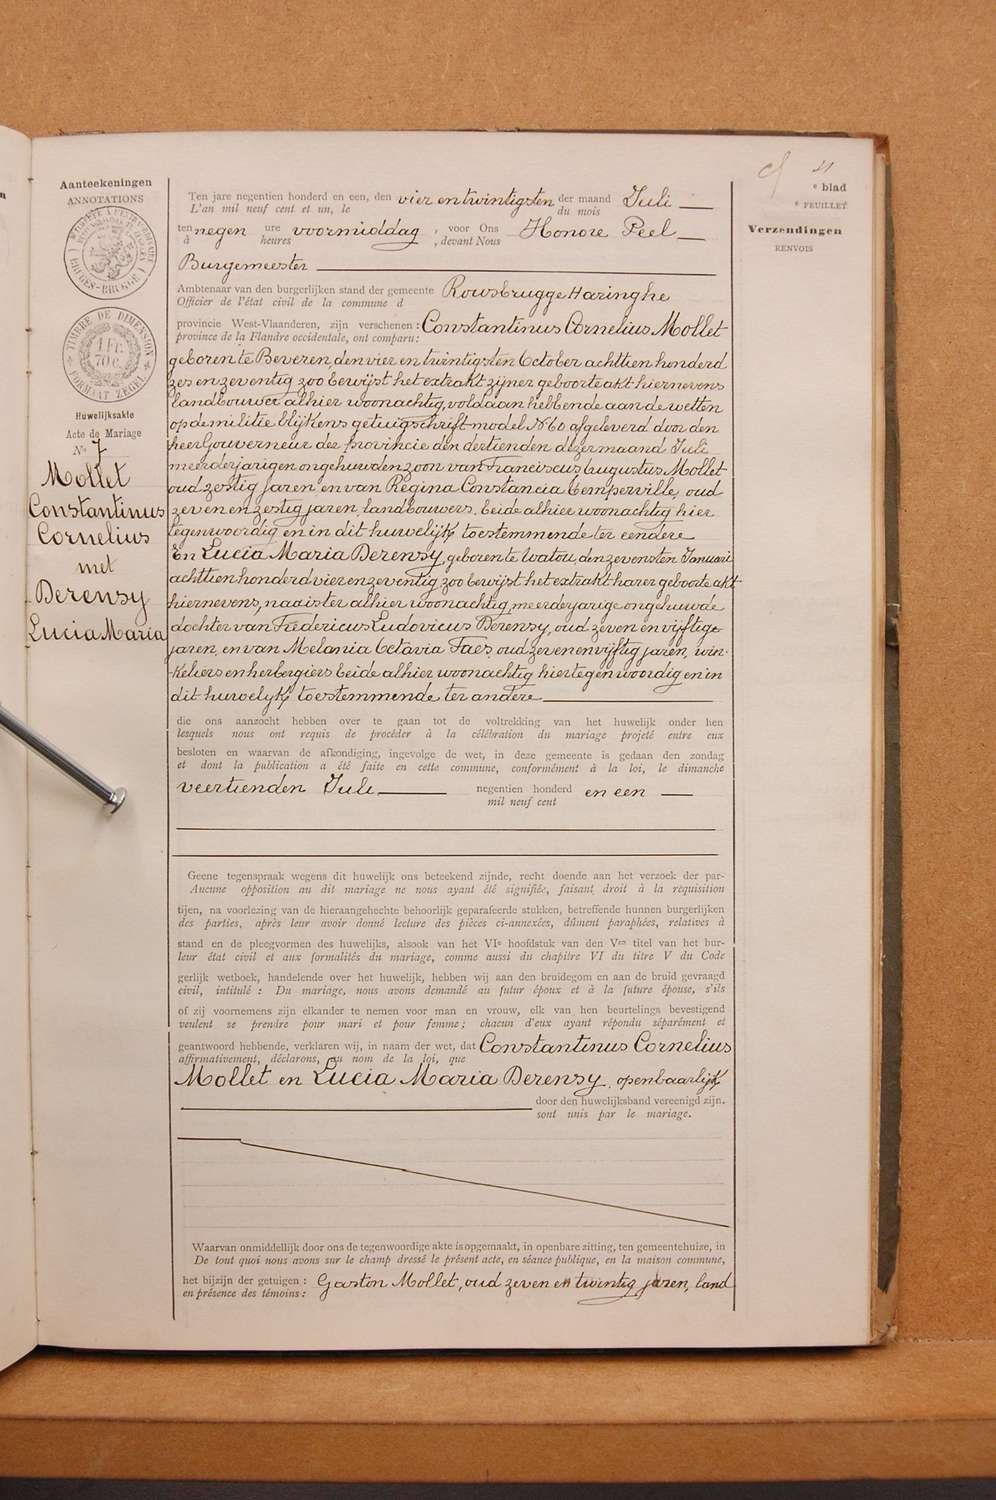 4
e blad
e FEUILLET
Verzendingen
RENVOIS
Aanteekeningen
ANNOTATIONS
BRUGES-BRUGGE
TIMBRE DE DIMENSION
1 Fr. 70 c.
FORMAAT ZEGEL
Huwelijksakte
Acte de Mariage
No 7
Mollet
Constantinus
Cornelius
met
Derensy
Lucia Maria
Ten jare negentien honderd en een, den vier en twintigsten der maand Juli
L'an mil neuf cent et un, le du mois
ten negen ure voormiddag, voor Ons Honore Peel
à heures , devant Nous
Burgemeester
Ambtenaar van den burgerlijken stand der gemeente Rousbrugge Haringhe
Officier de l'état civil de la commune d
provincie West-Vlaanderen, zijn verschenen : Constantinus Cornelius Mollet
province de la Flandre occidentale, ont comparu :
geboren te Beveren, den vier en twintigsten October achttien honderd
zes en zeventig zoo bewijst het extrakt zijner geboorte akt hiernevens
landbouwer alhier woonachtig, voldaan hebbende aan de wetten
op de militie blijkens getuigschrift model No 60 afgeleverd door den
heer Gouverneur der provincie den dertienden dezer maand Juli
meerderjarigen ongehuwden zoon van Franciscus Augustus Mollet
oud zestig jaren, en van Regina Constancia Temperville, oud
zeven en zestig jaren, landbouwers, beide alhier woonachtig hier
tegenwoordig en in dit huwelijk toestemmende ter eendere
En Lucia Maria Derensy, geboren te Watou, den zevensten Januari
achttien honderd vier en zeventig zoo bewijst het extrakt harer geboorte akt
hiernevens, naaister alhier woonachtig, meerderjarige ongehuwde
dochter van Fredericus Ludovicus Derensy, oud zeven en vijftig
jaren, en van Melania Octavia Faes, oud zeven en vijftig jaren, win-
keliers en herbergiers beide alhier woonachtig hier tegenwoordig en in
dit huwelijk toestemmende ter andere
die ons aanzocht hebben over te gaan tot de voltrekking van het huwelijk onder hen
lesquels nous ont requis de procéder à la célébration du mariage projeté entre eux
besloten en waarvan de afkondiging, ingevolge de wet, in deze gemeente is gedaan den zondag
et dont la publication a été faite en cette commune, conformément à la loi, le dimanche
veertienden Juli negentien honderd en een
mil neuf cent
Geene tegenspraak wegens dit huwelijk ons beteekend zijnde, recht doende aan het verzoek der par-
Aucune opposition au dit mariage ne nous ayant été signifiée, faisant droit à la réquisition
tijen, na voorlezing van de hieraangehechte behoorlijk geparafeerde stukken, betreffende hunnen burgerlijken
des parties, après leur avoir donné lecture des pièces ci-annexées, dûment paraphées, relatives à
stand en de pleegvormen des huwelijks, alsook van het VIe hoofdstuk van den Ven titel van het bur-
leur état civil et aux formalités du mariage, comme aussi du chapitre VI du titre V du Code
gerlijk wetboek, handelende over het huwelijk, hebben wij aan den bruidegom en aan de bruid gevraagd
civil, intitulé : Du mariage, nous avons demandé au futur époux et à la future épouse, s'ils
of zij voornemens zijn elkander te nemen voor man en vrouw, elk van hen beurtelings bevestigend
veulent se prendre pour mari et pour femme ; chacun d'eux ayant répondu séparément et
geantwoord hebbende, verklaren wij, in naam der wet, dat Constantinus Cornelius
affirmativement, déclarons, au nom de la loi, que
Mollet en Lucia Maria Derensy, openbaarlijk
door den huwelijksband vereenigd zijn.
sont unis par le mariage.
Waarvan onmiddellijk door ons de tegenwoordige akte is opgemaakt, in openbare zitting, ten gemeentehuize, in
De tout quoi nous avons sur le champ dressé le présent acte, en séance publique, en la maison commune,
het bijzijn der getuigen : Gaston Mollet, oud zeven en twintig jaren, land
en présence des témoins :